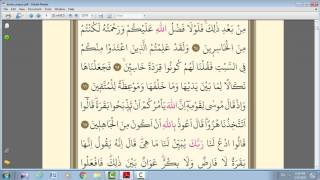 مِنْ بَعْدِ ذَٰلِكَ فَلَوْلَا فَضْلُ اللَّهِ عَلَيْكُمْ وَرَحْمَتُهُ لَكُنْتُمْ
مِنَ الْخَاسِرِينَ وَلَقَدْ عَلِمْتُمُ الَّذِينَ اعْتَدَوْا مِنْكُمْ
فِي السَّبْتِ فَقُلْنَا لَهُمْ كُونُوا قِرَدَةً خَاسِئِينَ فَجَعَلْنَاهَا
نَكَالًا لِمَا بَيْنَ يَدَيْهَا وَمَا خَلْفَهَا وَمَوْعِظَةً لِلْمُتَّقِينَ
وَإِذْ قَالَ مُوسَى لِقَوْمِهِ إِنَّ اللَّهَ يَأْمُرُكُمْ أَنْ تَذْبَحُوا بَقَرَةً قَالُوا
أَتَتَّخِذُنَا هُزُوًا قَالَ أَعُوذُ بِاللَّهِ أَنْ أَكُونَ مِنَ الْجَاهِلِينَ
قَالُوا ادْعُ لَنَا رَبَّكَ يُبَيِّنْ لَنَا مَا هِيَ قَالَ إِنَّهُ يَقُولُ إِنَّهَا
بَقَرَةٌ لَا فَارِضٌ وَلَا بِكْرٌ عَوَانٌ بَيْنَ ذَٰلِكَ فَافْعَلُوا